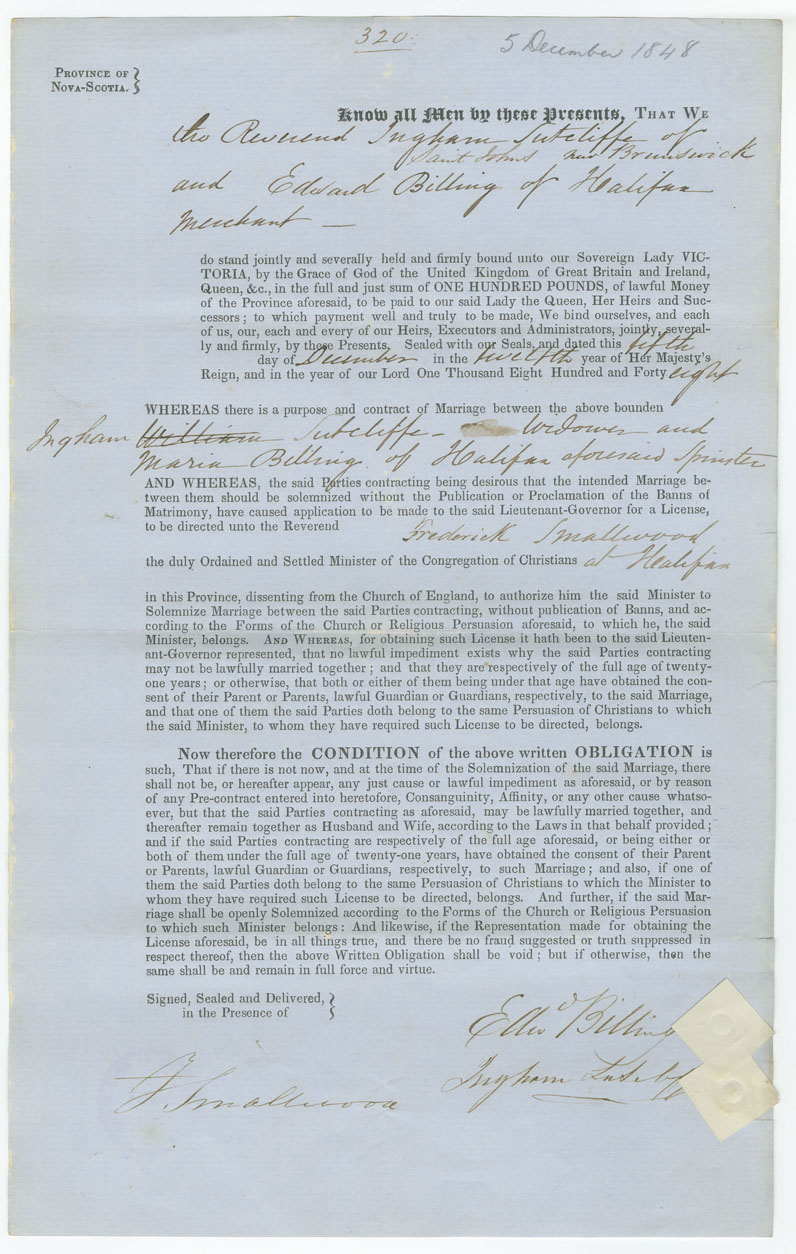 320.
5 December 1848
PROVINCE OF
NOVA-SCOTIA.
Know all Men by these Presents, THAT WE
the Reverend Ingham Sutcliffe of
Saint Johns New Brunswick
and Edward Billing of Halifax
Merchant —
do stand jointly and severally held and firmly bound unto our Sovereign Lady VIC-
TORIA, by the Grace of God of the United Kingdom of Great Britain and Ireland,
Queen, &c., in the full and just sum of ONE HUNDRED POUNDS, of lawful Money
of the Province aforesaid, to be paid to our said Lady the Queen, Her Heirs and Suc-
cessors; to which payment well and truly to be made, We bind ourselves, and each
of us, our, each and every of our Heirs, Executors and Administrators, jointly, several-
ly and firmly, by these Presents. Sealed with our Seals, and dated this fifth
day of December in the twelfth year of Her Majesty's
Reign, and in the year of our Lord One Thousand Eight Hundred and Forty eight
WHEREAS there is a purpose and contract of Marriage between the above bounden
Ingham William Sutcliffe – Widower and
Maria Billing of Halifax aforesaid Spinster
AND WHEREAS, the said Parties contracting being desirous that the intended Marriage be-
tween them should be solemnized without the Publication or Proclamation of the Banns of
Matrimony, have caused application to be made to the said Lieutenant-Governor for a License,
to be directed unto the Reverend
Frederick Smallwood
the duly Ordained and Settled Minister of the Congregation of Christians at Halifax
in this Province, dissenting from the Church of England, to authorize him the said Minister to
Solemnize Marriage between the said Parties contracting, without publication of Banns, and ac-
cording to the Forms of the Church or Religious Persuasion aforesaid, to which he, the said
Minister, belongs. AND WHEREAS, for obtaining such License it hath been to the said Lieuten-
ant-Governor represented, that no lawful impediment exists why the said Parties contracting
may not be lawfully married together; and that they are respectively of the full age of twenty-
one years; or otherwise, that both or either of them being under that age have obtained the con-
sent of their Parent or Parents, lawful Guardian or Guardians, respectively, to the said Marriage,
and that one of them the said Parties doth belong to the same Persuasion of Christians to which
the said Minister, to whom they have required such License to be directed, belongs.
Now therefore the CONDITION of the above written OBLIGATION is
such, That if there is not now, and at the time of the Solemnization of the said Marriage, there
shall not be, or hereafter appear, any just cause or lawful impediment as aforesaid, or by reason
of any Pre-contract entered into heretofore, Consanguinity, Affinity, or any other cause whatso-
ever, but that the said Parties contracting as aforesaid, may be lawfully married together, and
thereafter remain together as Husband and Wife, according to the Laws in that behalf provided;
and if the said Parties contracting are respectively of the full age aforesaid, or being either or
both of them under the full age of twenty-one years, have obtained the consent of their Parent
or Parents, lawful Guardian or Guardians, respectively, to such Marriage; and also, if one of
them the said Parties doth belong to the same Persuasion of Christians to which the Minister to
whom they have required such License to be directed, belongs. And further, if the said Mar-
riage shall be openly Solemnized according to the Forms of the Church or Religious Persuasion
to which such Minister belongs: And likewise, if the Representation made for obtaining the
License aforesaid, be in all things true, and there be no fraud suggested or truth suppressed in
respect thereof, then the above Written Obligation shall be void; but if otherwise, then the
same shall be and remain in full force and virtue.
Signed, Sealed and Delivered,
in the Presence of
Edwd Billing
Ingham Sutcliffe
F Smallwood